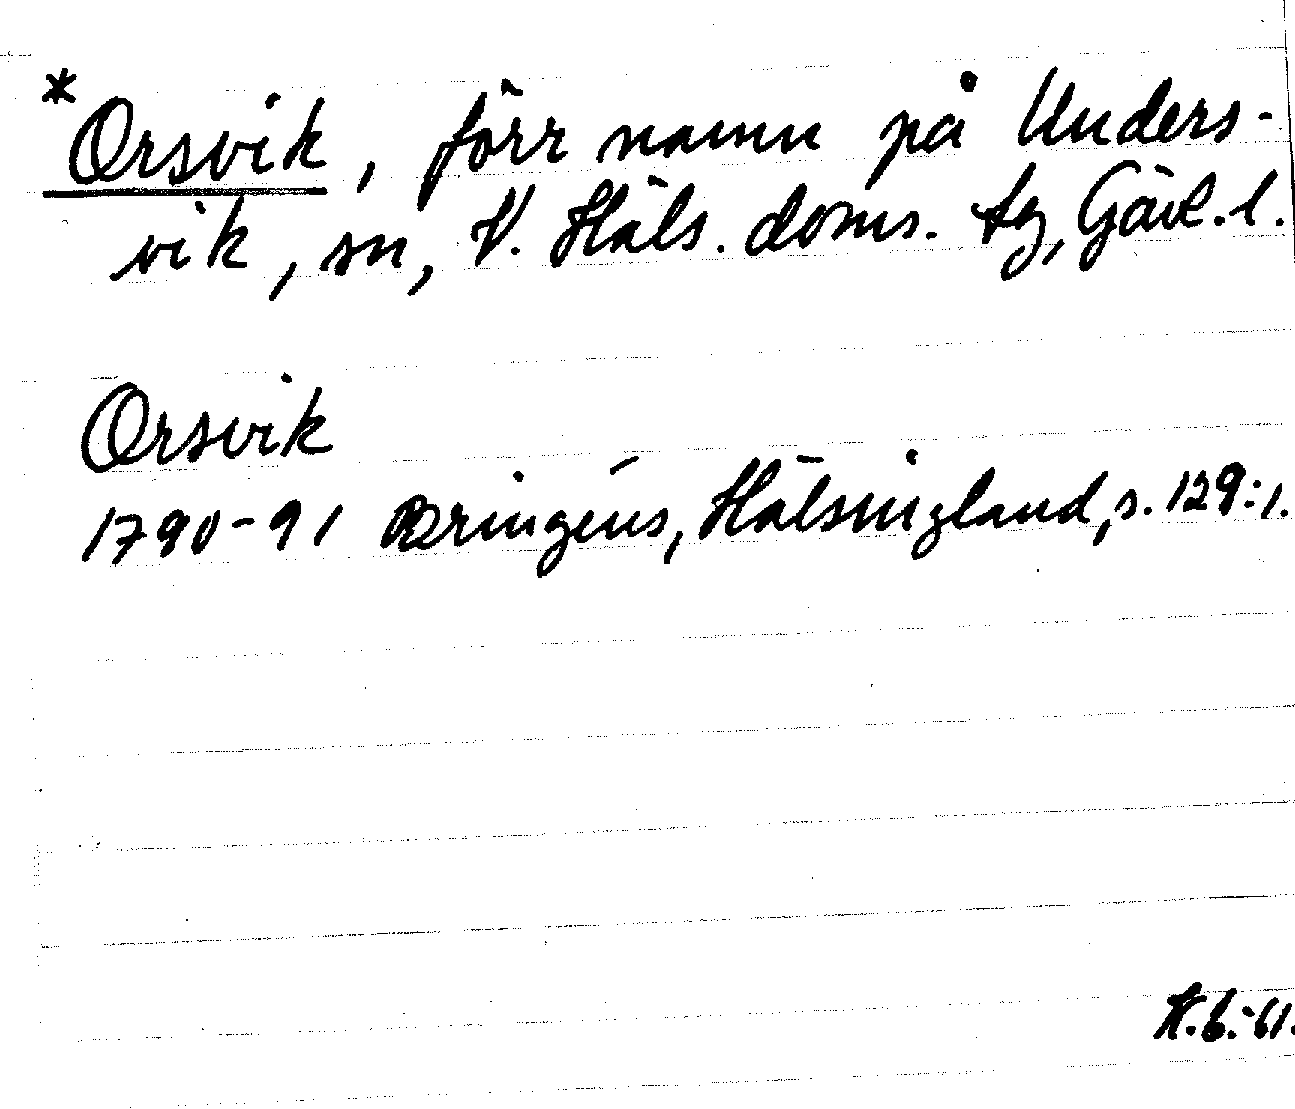 *Orsvik, förr namn på Unders-
vik, sn, V. Häls. doms. tg, Gävl. l.
Orsvik
1790-91 Bringéus, Hälsingland, s. 129:1.
K.B.-61.